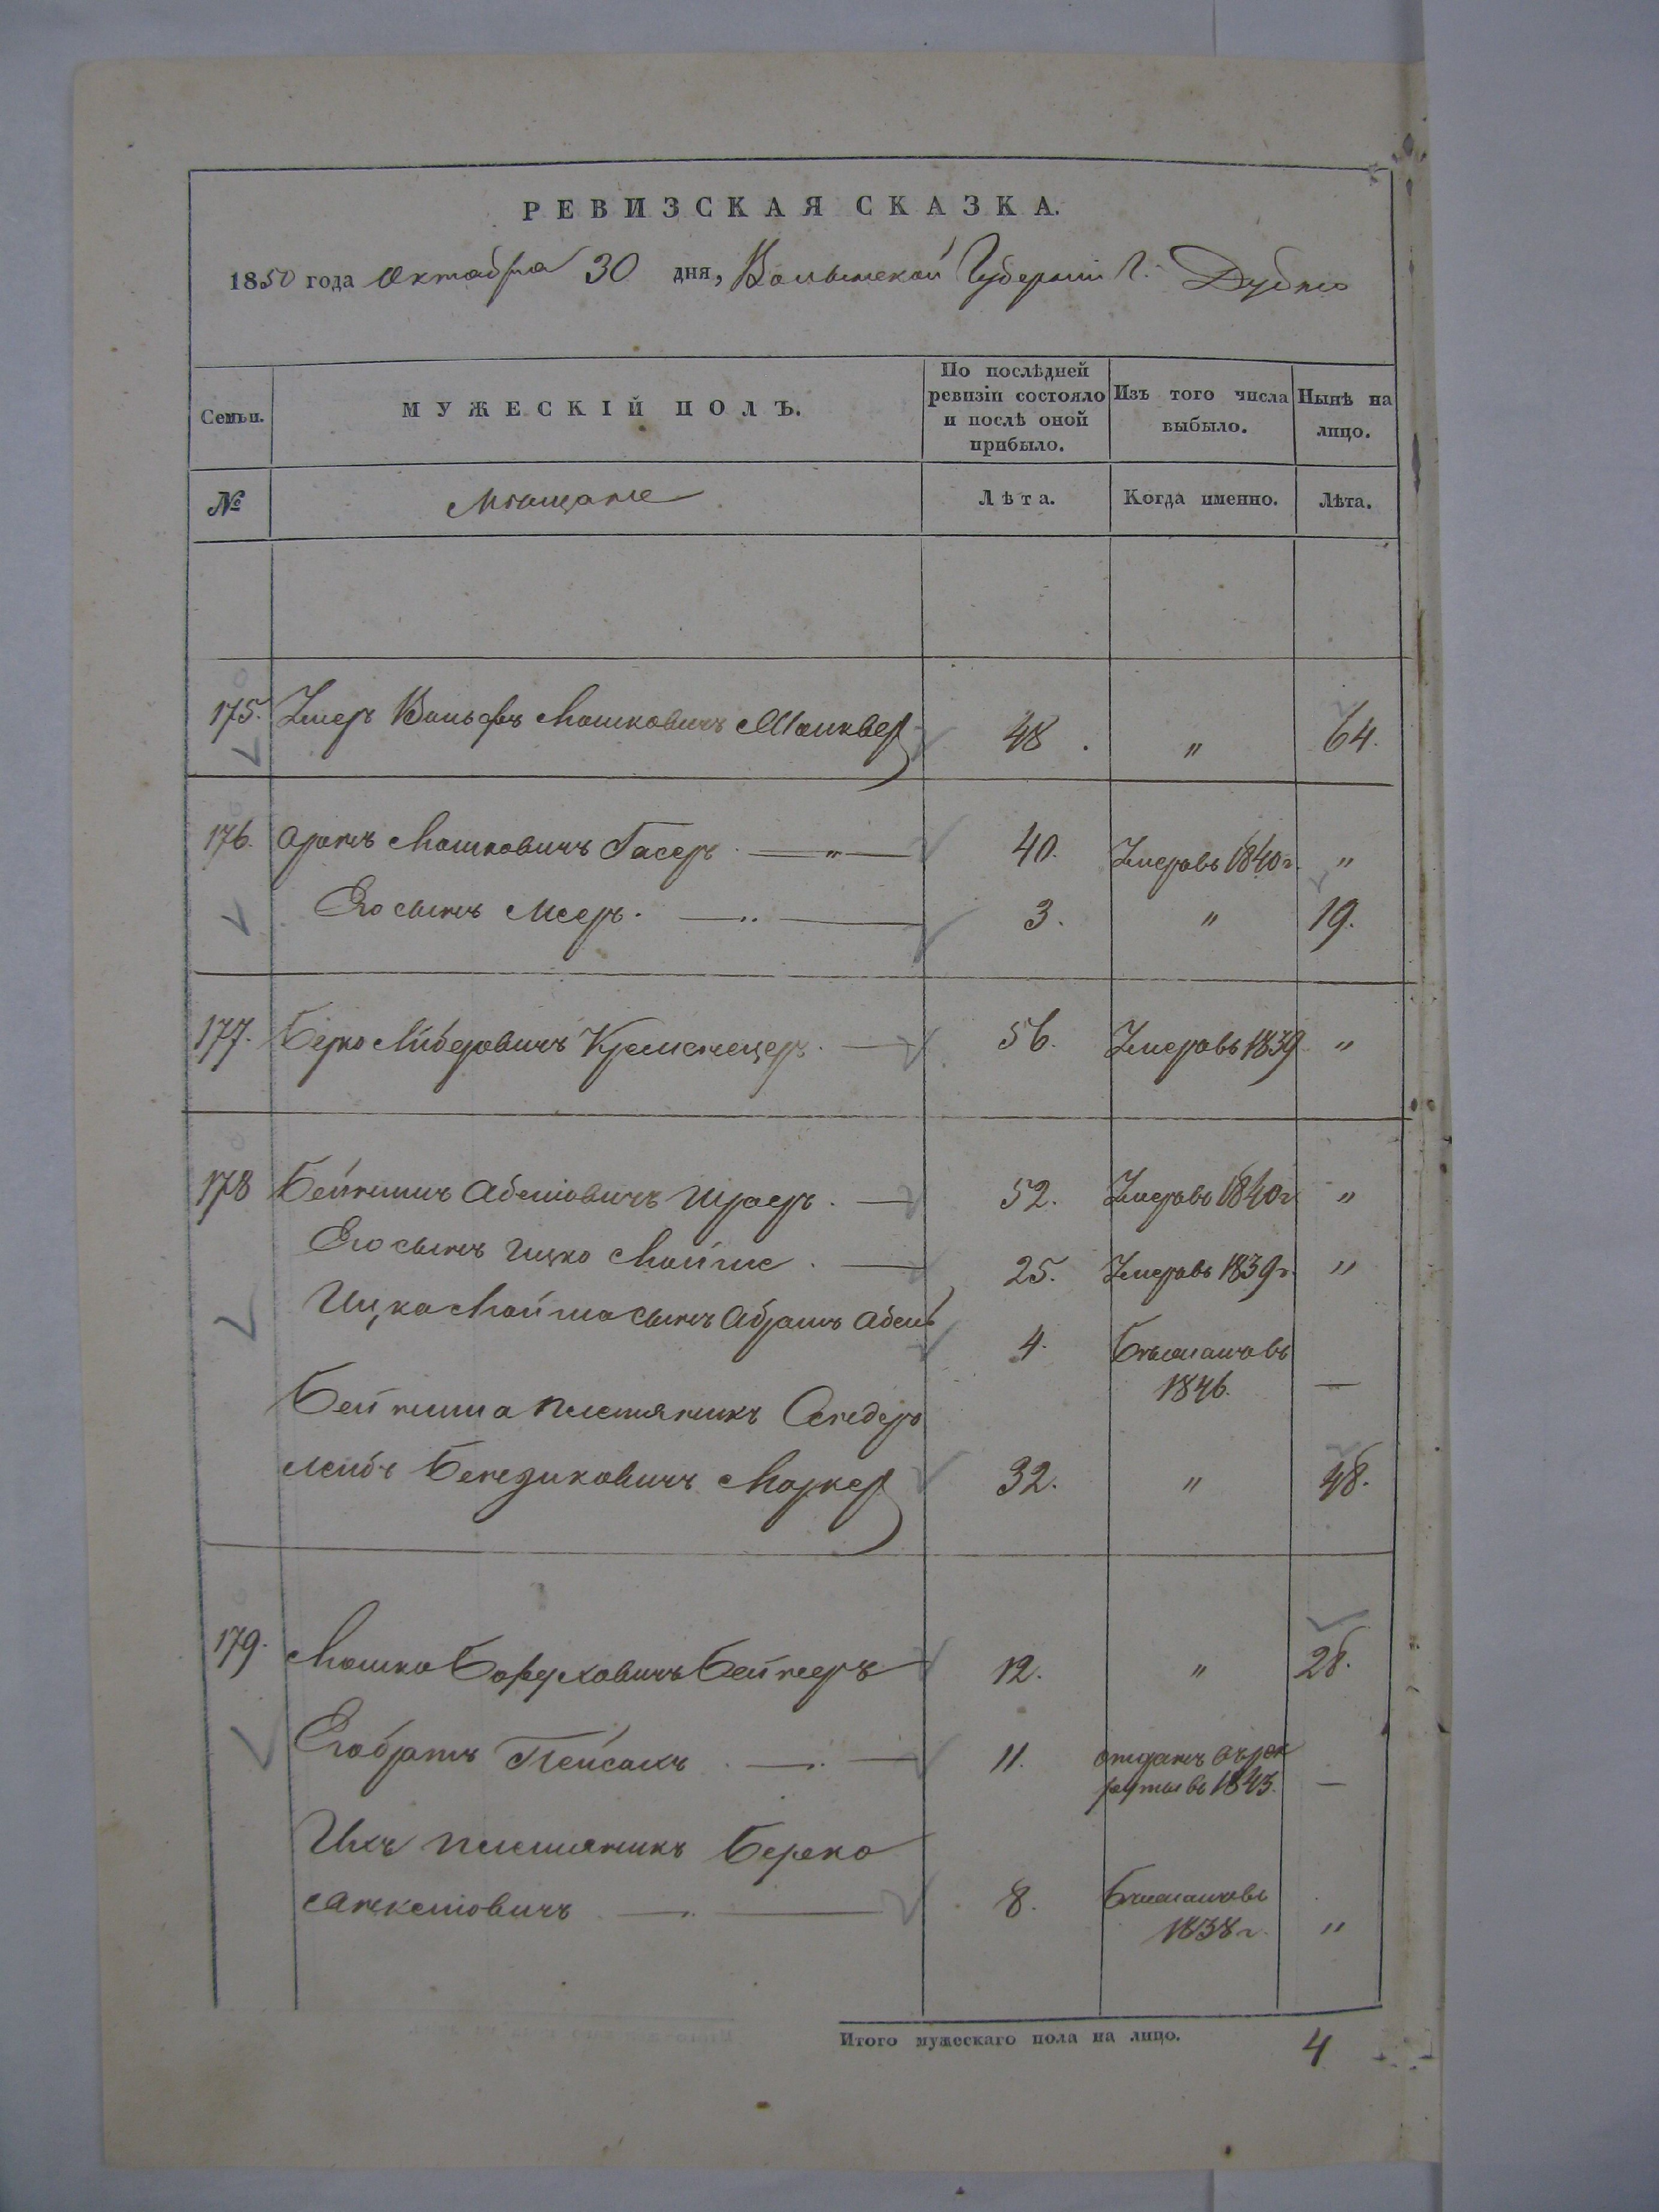 РЕВИЗСКАЯ СКАЗКА.
1850 года Октября 30 дня, Волынской Губернии Г. Дубно
Семьи.
МУЖЕСКІЙ ПОЛЪ.
По послѣдней ревизіи состояло и послѣ оной прибыло.
Изъ того числа выбыло.
Нынѣ на лицо.
№ Мѣщане Лѣта. Когда именно. Лѣта.
175. Вольфъ Мошковичъ 48. " 64.
176. Аронъ Мошковичъ Гасеръ — " — 40. Умеръ въ 1840 г. "
Его сынъ Мееръ. — " — 3. " 19.
177. Берко Лейбовичъ Кременецеръ. — 56. Умеръ въ 1839 "
178 Бейнишъ Абелиовичъ Шраеръ. — 52. Умеръ въ 1840 г "
Его сынъ Ицко Мойше. — 25. Умеръ въ 1839 г. "
Ицка Мойша сынъ Абрамъ Абель 4. Въ бѣгахъ въ
1846. —
Бейниша племяникъ Сендеръ
Лейбъ Маркеръ 32. " 48.
179. Мошко Боруховичъ Бейнеръ 12. " 28.
Его братъ Пейсахъ. — " — 11. отданъ въ рек
руты въ 1843. —
Ихъ племяникъ Берко
— " — 8.
1838 г. "
Итого мужескаго пола на лицо. 4